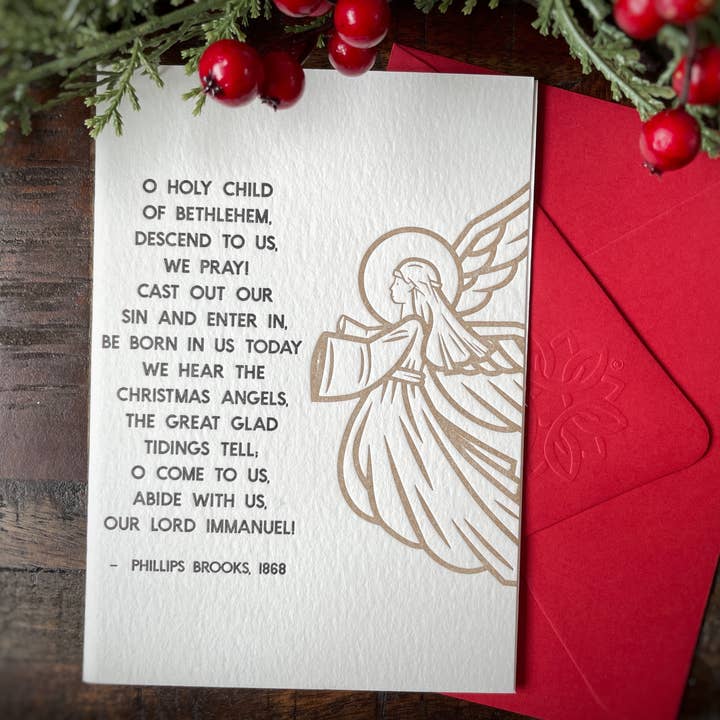 O HOLY CHILD
OF BETHLEHEM,
DESCEND TO US,
WE PRAY!
CAST OUT OUR
SIN AND ENTER IN,
BE BORN IN US TODAY
WE HEAR THE
CHRISTMAS ANGELS,
THE GREAT GLAD
TIDINGS TELL;
O COME TO US,
ABIDE WITH US,
OUR LORD IMMANUEL!
– PHILLIPS BROOKS, 1868
®